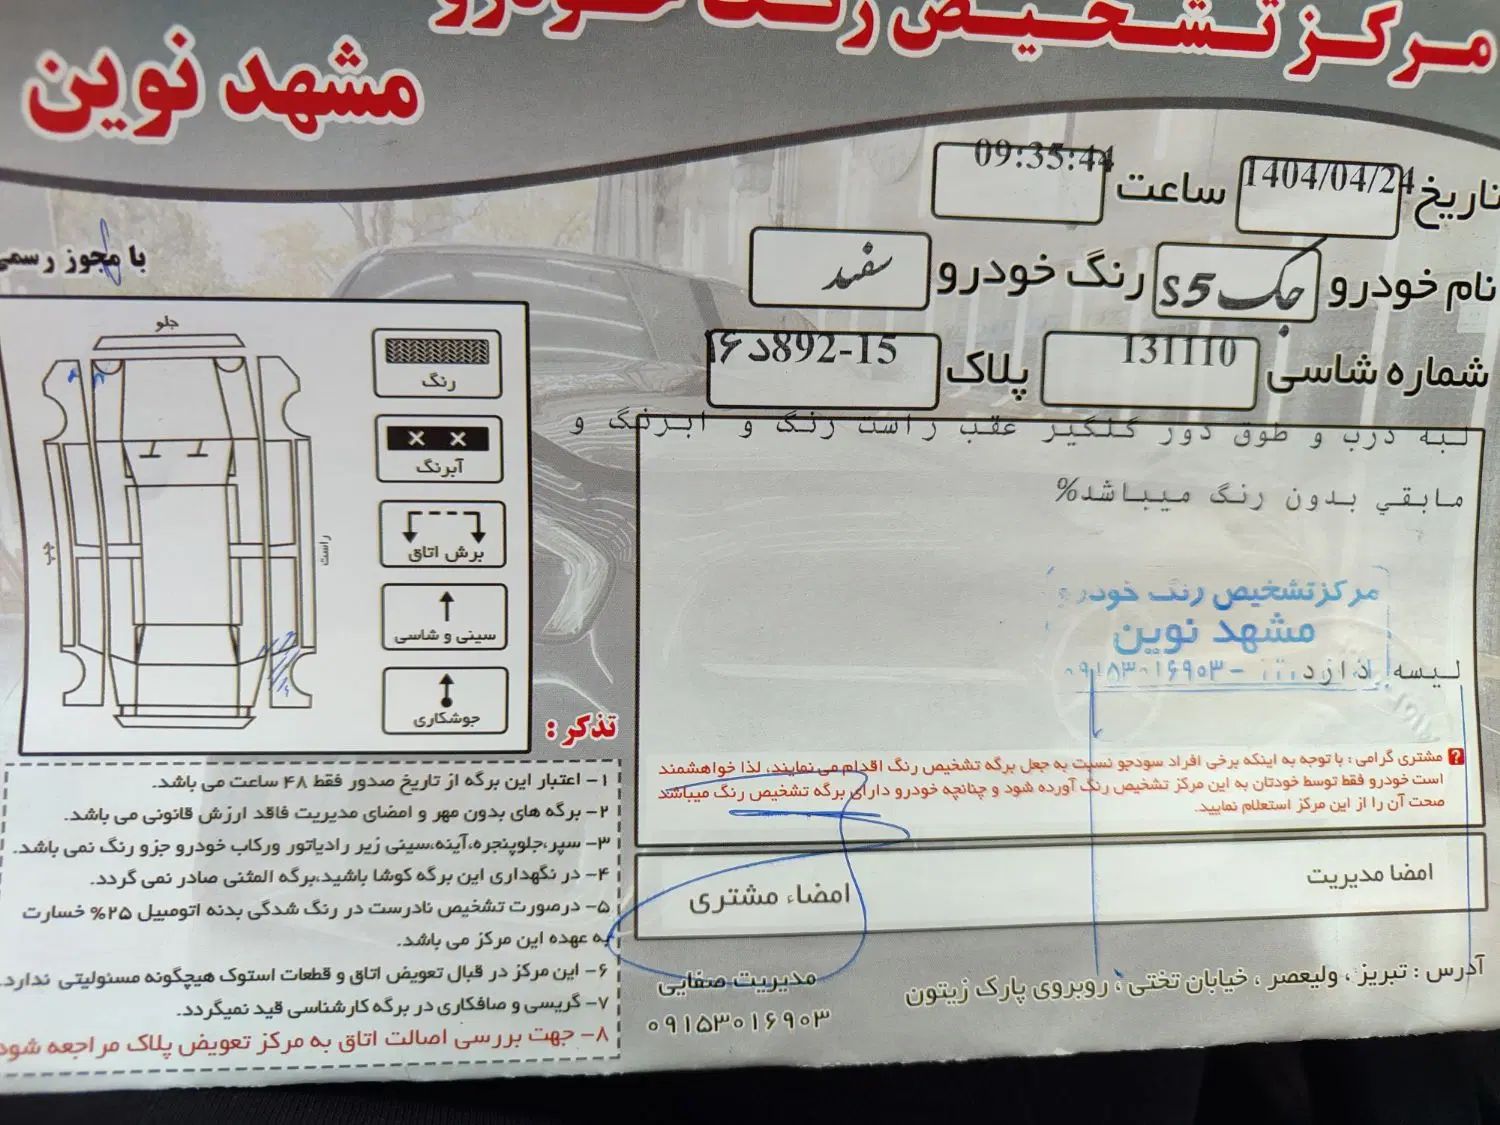 مرکز تشخیص رنگ خودرو
مشهد نوین
تاریخ 1404/04/24 ساعت 09:35:44
نام خودرو جک S5 رنگ خودرو سفید
شماره شاسی 131110 پلاک ۱۶د892-15
با مجوز رسمی
لبه درب و طوق دور گلگیر عقب راست رنگ و ابرنگ و
مابقي بدون رنگ میباشد%
لیسه دارد
مرکز تشخیص رنگ خودرو
مشهد نوین
۰۹۱۵۳۰۱۶۹۰۳
جلو
راست
چپ
رنگ
آبرنگ
برش اتاق
سینی و شاسی
جوشکاری
مشتری گرامی : با توجه به اینکه برخی افراد سودجو نسبت به جعل برگه تشخیص رنگ اقدام می نمایند، لذا خواهشمند
است خودرو فقط توسط خودتان به این مرکز تشخیص رنگ آورده شود و چنانچه خودرو دارای برگه تشخیص رنگ میباشد
صحت آن را از این مرکز استعلام نمایید.
امضا مدیریت
امضاء مشتری
تذکر :
۱- اعتبار این برگه از تاریخ صدور فقط ۴۸ ساعت می باشد.
۲- برگه های بدون مهر و امضای مدیریت فاقد ارزش قانونی می باشد.
۳- سپر،جلوپنجره،آینه،سینی زیر رادیاتور ورکاب خودرو جزو رنگ نمی باشد.
۴- در نگهداری این برگه کوشا باشید،برگه المثنی صادر نمی گردد.
۵- درصورت تشخیص نادرست در رنگ شدگی بدنه اتومبیل ۲۵% خسارت
به عهده این مرکز می باشد.
۶- این مرکز در قبال تعویض اتاق و قطعات استوک هیچگونه مسئولیتی ندارد.
۷- گریسی و صافکاری در برگه کارشناسی قید نمیگردد.
۸- جهت بررسی اصالت اتاق به مرکز تعویض پلاک مراجعه شود
آدرس : تبریز ، ولیعصر ، خیابان تختی ، روبروی پارک زیتون
مدیریت صفایی
۰۹۱۵۳۰۱۶۹۰۳